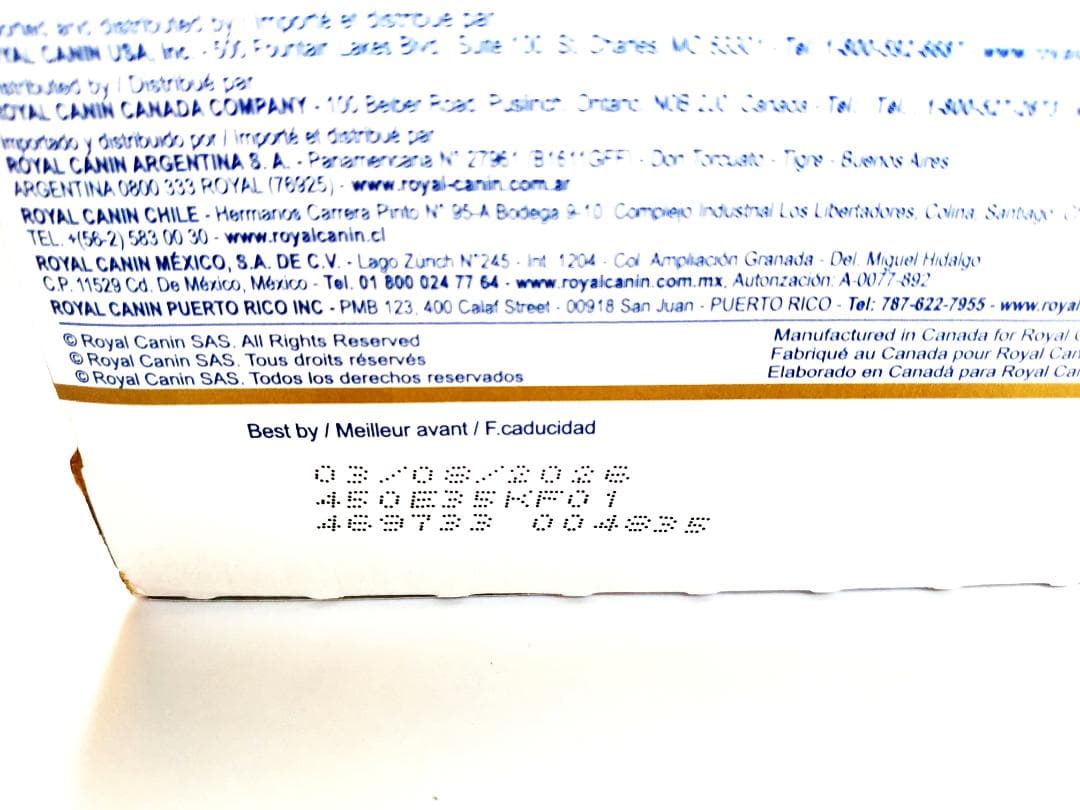 and distributed by / Importé et distribué par
ROYAL CANIN USA, Inc. - 500 Fountain Lakes Blvd, Suite 100 St. Charles, MO
Distribué par
ROYAL CANIN CANADA COMPANY - 100 Beiber Road, Puslinch, Ontario, Canada - Tel.:
Importado y distribuido por / Importé et distribué par
ROYAL CANIN ARGENTINA S. A. - Panamericana N° 27961 (B1611GFF) - Don Torcuato - Tigre - Buenos Aires
ARGENTINA 0800 333 ROYAL (76925) - www.royal-canin.com.ar
ROYAL CANIN CHILE - Hermanos Carrera Pinto N° 95-A Bodega 9-10, Complejo Industrial Los Libertadores, Colina, Santiago
TEL. +(56-2) 583 00 30 - www.royalcanin.cl
ROYAL CANIN MÉXICO, S.A. DE C.V. - Lago Zurich N°245 - Int. 1204 - Col. Ampliación Granada - Del. Miguel Hidalgo
C.P. 11529 Cd. De México, México - Tel. 01 800 024 77 64 - www.royalcanin.com.mx, Autorización: A-0077-892
ROYAL CANIN PUERTO RICO INC - PMB 123, 400 Calaf Street - 00918 San Juan - PUERTO RICO - Tel: 787-622-7955 - www.royal
© Royal Canin SAS. All Rights Reserved
© Royal Canin SAS. Tous droits réservés
© Royal Canin SAS. Todos los derechos reservados
Manufactured in Canada for Royal
Fabriqué au Canada pour Royal
Elaborado en Canadá para Royal
Best by / Meilleur avant / F.caducidad
03/08/2026
450E35KF01
469733 004835